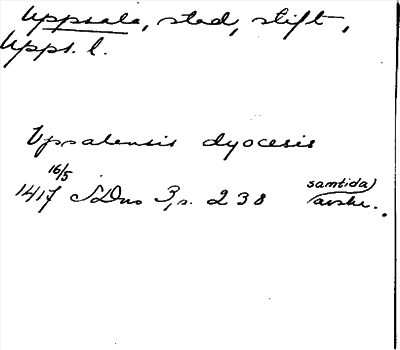 Uppsala, stad, stift,
Upps. l.
Vpsalensis dyocesis
16/5
1417 SDns 3, s. 238 samtida)
avskr.